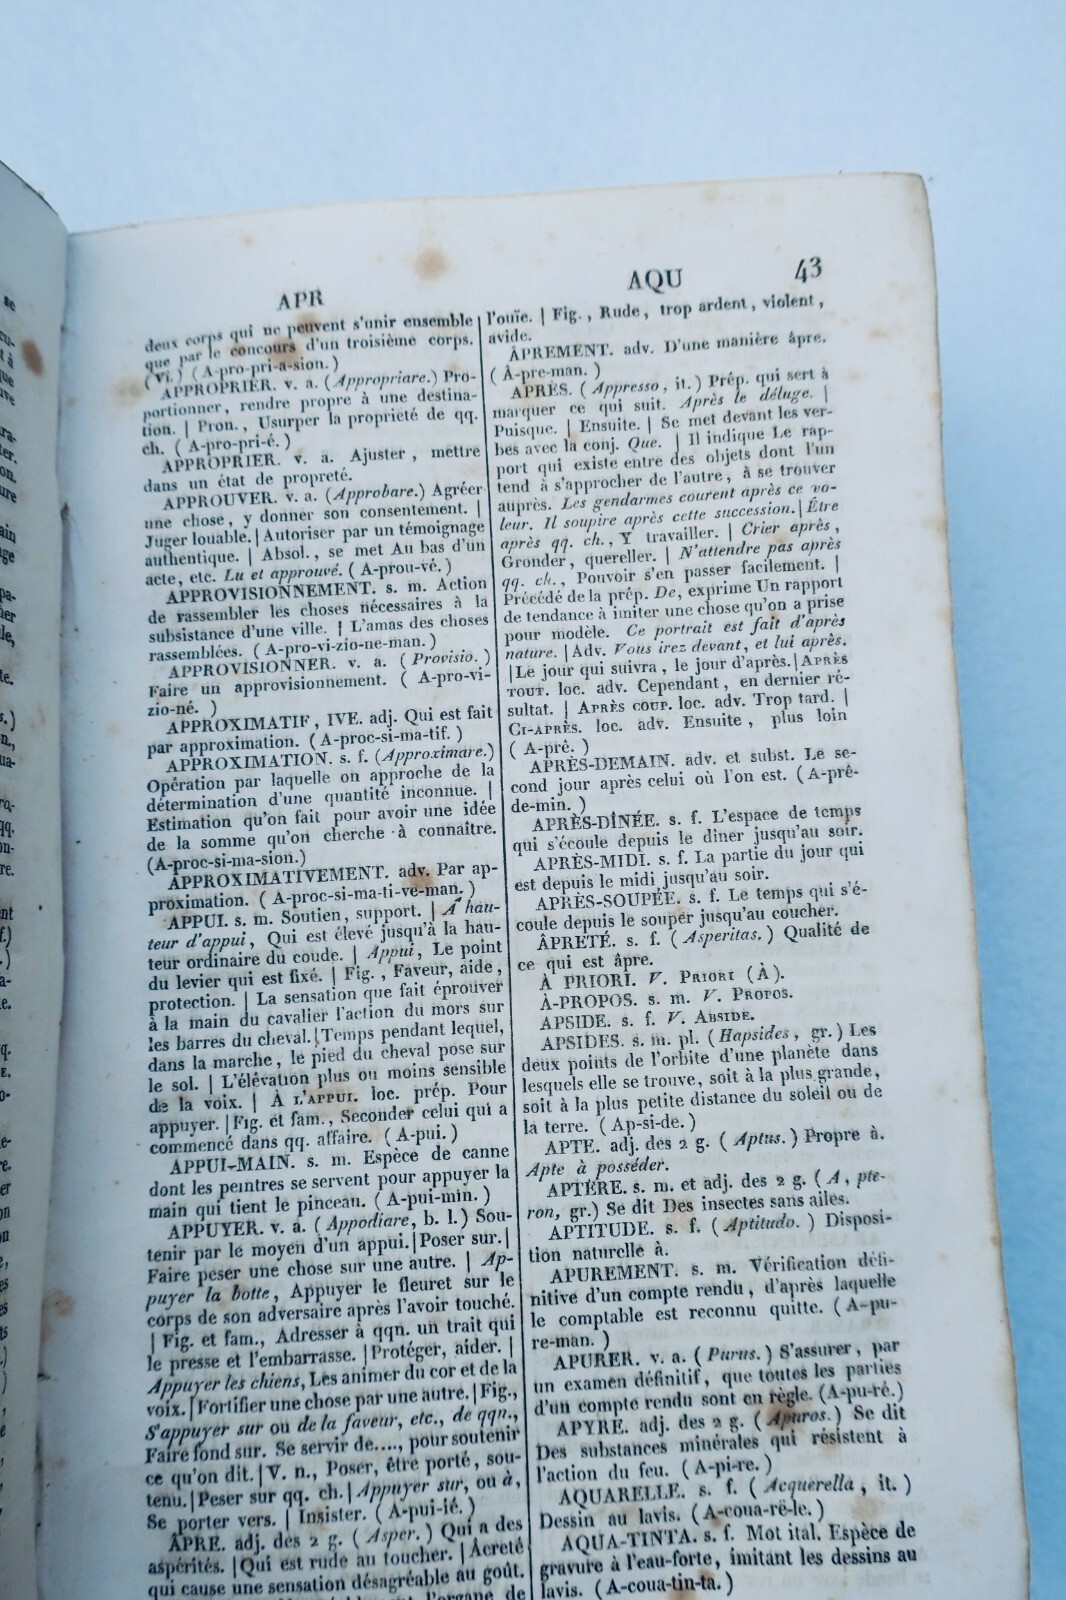 APR
AQU
43
deux corps qui ne peuvent s'unir ensemble
que par le concours d'un troisième corps.
(Vi.) (A-pro-pri-a-sion.)
APPROPRIER. v. a. (Appropriare.) Pro-
portionner, rendre propre à une destina-
tion. | Pron., Usurper la propriété de qq.
ch. (A-pro-pri-é.)
APPROPRIER. v. a. Ajuster, mettre
dans un état de propreté.
APPROUVER. v. a. (Approbare.) Agréer
une chose, y donner son consentement. |
Juger louable. | Autoriser par un témoignage
authentique. | Absol., se met Au bas d'un
acte, etc. Lu et approuvé. (A-prou-vé.)
APPROVISIONNEMENT. s. m. Action
de rassembler les choses nécessaires à la
subsistance d'une ville. | L'amas des choses
rassemblées. (A-pro-vi-zio-ne-man.)
APPROVISIONNER. v. a. (Provisio.)
Faire un approvisionnement. (A-pro-vi-
zio-né.)
APPROXIMATIF, IVE. adj. Qui est fait
par approximation. (A-proc-si-ma-tif.)
APPROXIMATION. s. f. (Approximare.)
Opération par laquelle on approche de la
détermination d'une quantité inconnue. |
Estimation qu'on fait pour avoir une idée
de la somme qu'on cherche à connaître.
(A-proc-si-ma-sion.)
APPROXIMATIVEMENT. adv. Par ap-
proximation. (A-proc-si-ma-ti-ve-man.)
APPUI. s. m. Soutien, support. | A hau-
teur d'appui, Qui est élevé jusqu'à la hau-
teur ordinaire du coude. | Appui, Le point
du levier qui est fixé. | Fig., Faveur, aide,
protection. | La sensation que fait éprouver
à la main du cavalier l'action du mors sur
les barres du cheval. | Temps pendant lequel,
dans la marche, le pied du cheval pose sur
le sol. | L'élévation plus ou moins sensible
de la voix. | À L'APPUI. loc. prép. Pour
appuyer. | Fig. et fam., Seconder celui qui a
commencé dans qq. affaire. (A-pui.)
APPUI-MAIN. s. m. Espèce de canne
dont les peintres se servent pour appuyer la
main qui tient le pinceau. (A-pui-min.)
APPUYER. v. a. (Appodiare, b. l.) Sou-
tenir par le moyen d'un appui. | Poser sur. |
Faire peser une chose sur une autre. | Ap-
puyer la botte, Appuyer le fleuret sur le
corps de son adversaire après l'avoir touché.
| Fig. et fam., Adresser à qqn. un trait qui
le presse et l'embarrasse. | Protéger, aider. |
Appuyer les chiens, Les animer du cor et de la
voix. | Fortifier une chose par une autre. | Fig.,
S'appuyer sur ou de la faveur, etc., de qqn.,
Faire fond sur. Se servir de...., pour soutenir
ce qu'on dit. | V. n., Poser, être porté, sou-
tenu. | Peser sur qq. ch. | Appuyer sur, ou à,
Se porter vers. | Insister. (A-pui-ié.)
ÂPRE. adj. des 2 g. (Asper.) Qui a des
aspérités. | Qui est rude au toucher. | Âcreté
qui cause une sensation désagréable au goût.
l'organe de
l'ouïe. | Fig., Rude, trop ardent, violent,
avide.
ÂPREMENT. adv. D'une manière âpre.
(Â-pre-man.)
APRÈS. (Appresso, it.) Prép. qui sert à
marquer ce qui suit. Après le déluge. |
Puisque. | Ensuite. | Se met devant les ver-
bes avec la conj. Que. | Il indique Le rap-
port qui existe entre des objets dont l'un
tend à s'approcher de l'autre, à se trouver
auprès. Les gendarmes courent après ce vo-
leur. Il soupire après cette succession. | Être
après qq. ch., Y travailler. | Crier après,
Gronder, quereller. | N'attendre pas après
qq. ch., Pouvoir s'en passer facilement. |
Précédé de la prép. De, exprime Un rapport
de tendance à imiter une chose qu'on a prise
pour modèle. Ce portrait est fait d'après
nature. | Adv. Vous irez devant, et lui après.
| Le jour qui suivra, le jour d'après. | APRÈS
TOUT. loc. adv. Cependant, en dernier ré-
sultat. | APRÈS COUP. loc. adv. Trop tard. |
CI-APRÈS. loc. adv. Ensuite, plus loin
(A-prê.)
APRÈS-DEMAIN. adv. et subst. Le se-
cond jour après celui où l'on est. (A-prê-
de-min.)
APRÈS-DÎNÉE. s. f. L'espace de temps
qui s'écoule depuis le dîner jusqu'au soir.
APRÈS-MIDI. s. f. La partie du jour qui
est depuis le midi jusqu'au soir.
APRÈS-SOUPÉE. s. f. Le temps qui s'é-
coule depuis le souper jusqu'au coucher.
ÂPRETÉ. s. f. (Asperitas.) Qualité de
ce qui est âpre.
À PRIORI. V. PRIORI (À).
À-PROPOS. s. m. V. PROPOS.
APSIDE. s. f. V. ABSIDE.
APSIDES. s. m. pl. (Hapsides, gr.) Les
deux points de l'orbite d'une planète dans
lesquels elle se trouve, soit à la plus grande,
soit à la plus petite distance du soleil ou de
la terre. (Ap-si-de.)
APTE. adj. des 2 g. (Aptus.) Propre à.
Apte à posséder.
APTÈRE. s. m. et adj. des 2 g. (A, pte-
ron, gr.) Se dit Des insectes sans ailes.
APTITUDE. s. f. (Aptitudo.) Disposi-
tion naturelle à.
APUREMENT. s. m. Vérification défi-
nitive d'un compte rendu, d'après laquelle
le comptable est reconnu quitte. (A-pu-
re-man.)
APURER. v. a. (Purus.) S'assurer, par
un examen définitif, que toutes les parties
d'un compte rendu sont en règle. (A-pu-ré.)
APYRE. adj. des 2 g. (Apuros.) Se dit
Des substances minérales qui résistent à
l'action du feu. (A-pi-re.)
AQUARELLE. s. f. (Acquerella, it.)
Dessin au lavis. (A-coua-rè-le.)
AQUA-TINTA. s. f. Mot ital. Espèce de
gravure à l'eau-forte, imitant les dessins au
lavis. (A-coua-tin-ta.)